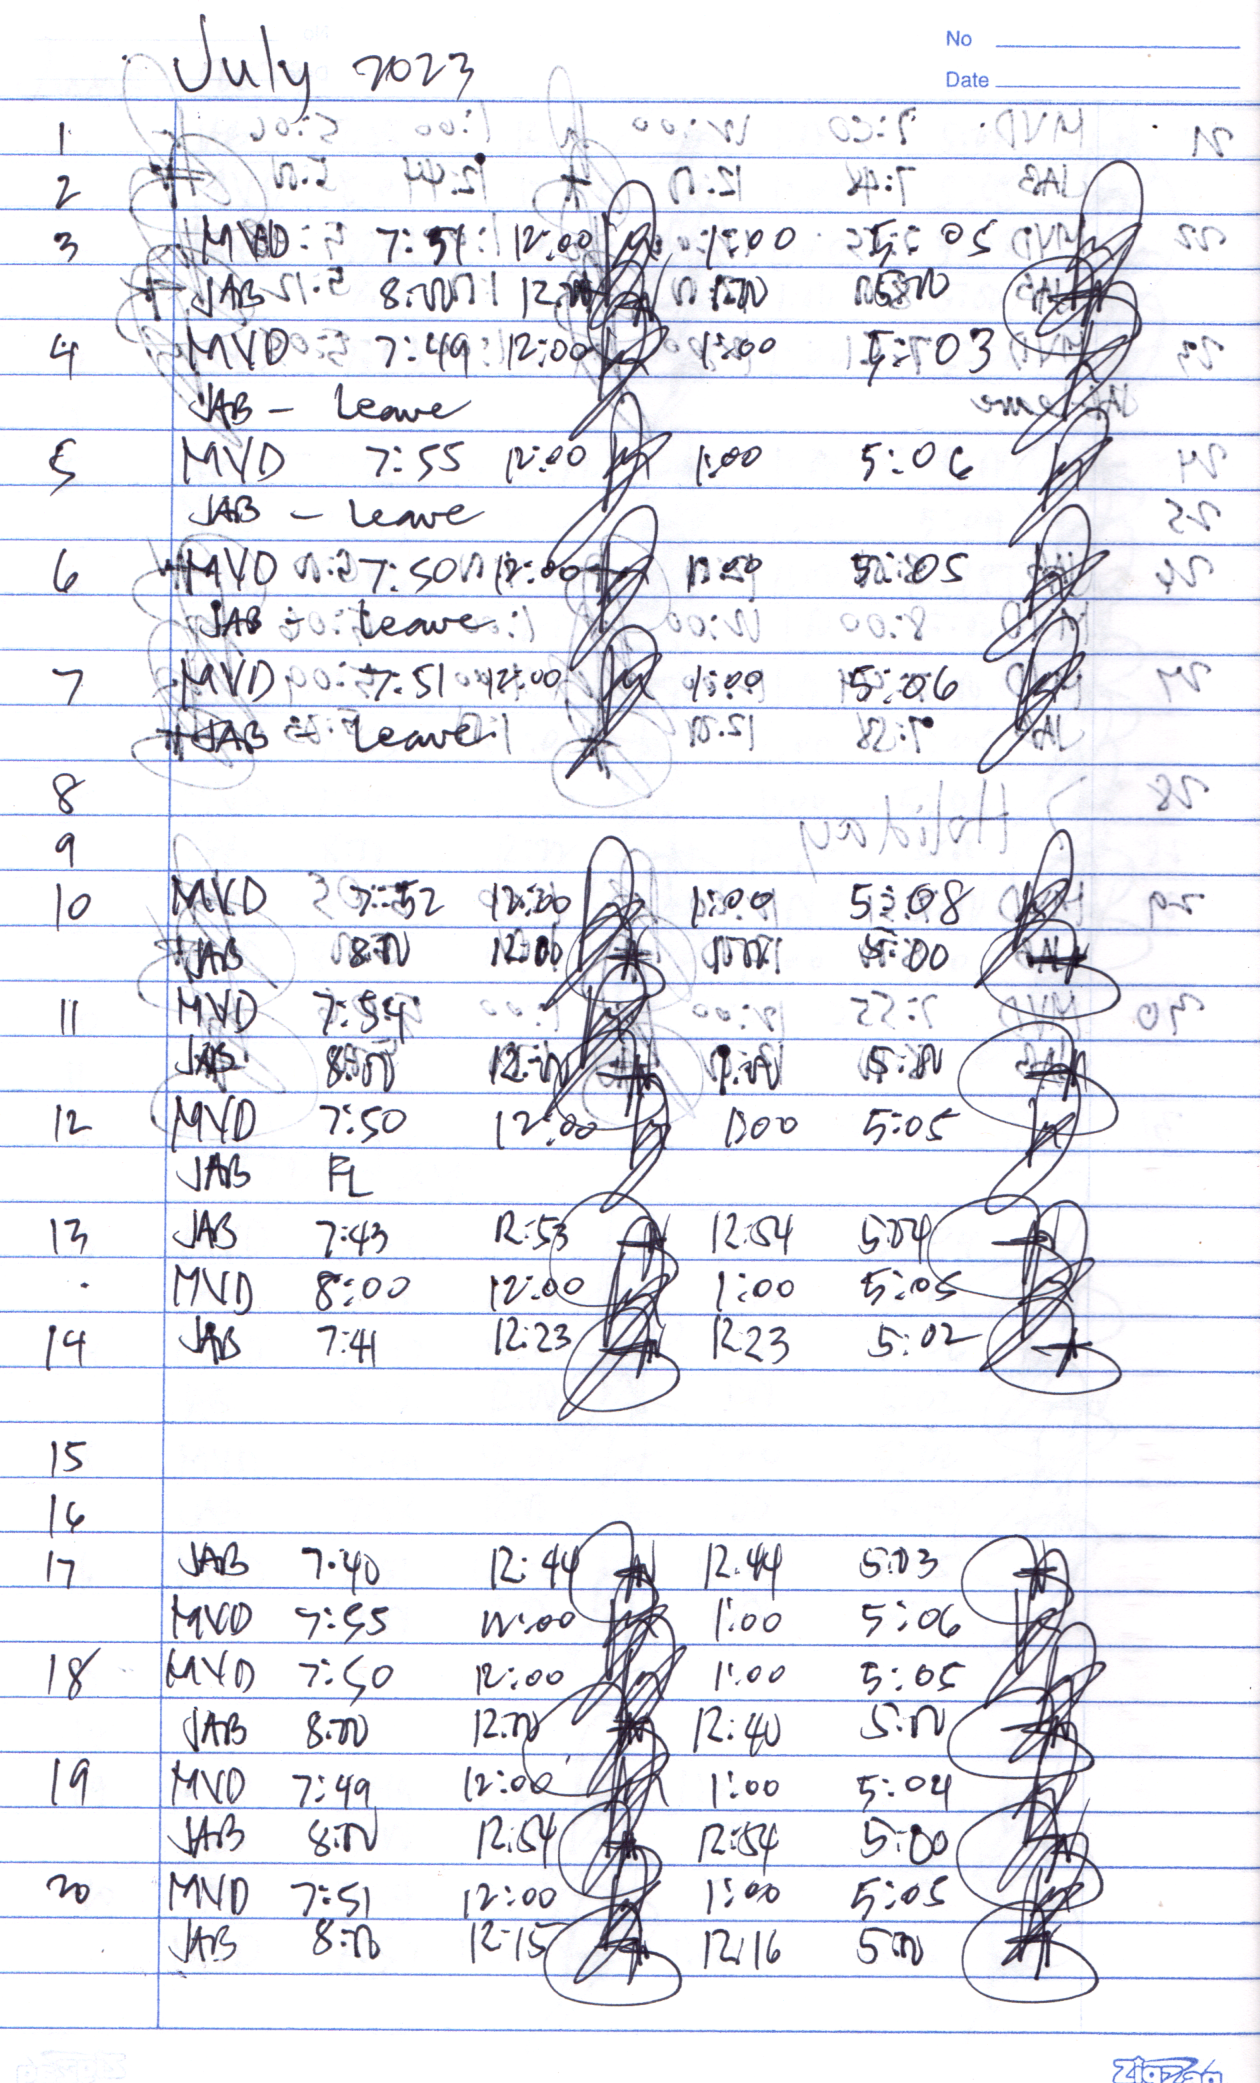 July 2023
No
Date
1
2
3 MVD 7:51 12:00 1:00 5:05
JAB 8:00 12:00 1:00 5:00
4 MVD 7:49 12:00 1:00 5:03
JAB - Leave
5 MVD 7:55 12:00 1:00 5:06
JAB - Leave
6 MVD 7:50 12:00 1:00 5:05
JAB - Leave
7 MVD 7:51 12:00 1:00 5:06
JAB - Leave
8
9
10 MVD 7:52 12:00 1:00 5:08
JAB 8:00 12:00 5:00
11 MVD 7:54
JAB 8:00 12:00 1:00 5:00
12 MVD 7:50 12:00 1:00 5:05
JAB FL
13 JAB 7:43 12:53 12:54 5:04
MVD 8:00 12:00 1:00 5:05
14 JAB 7:41 12:23 12:23 5:02
15
16
17 JAB 7:40 12:44 12:44 5:03
MVD 7:55 12:00 1:00 5:06
18 MVD 7:50 12:00 1:00 5:05
JAB 8:00 12:00 12:40 5:00
19 MVD 7:49 12:00 1:00 5:04
JAB 8:00 12:54 12:54 5:00
20 MVD 7:51 12:00 1:00 5:05
JAB 8:00 12:15 12:16 5:00